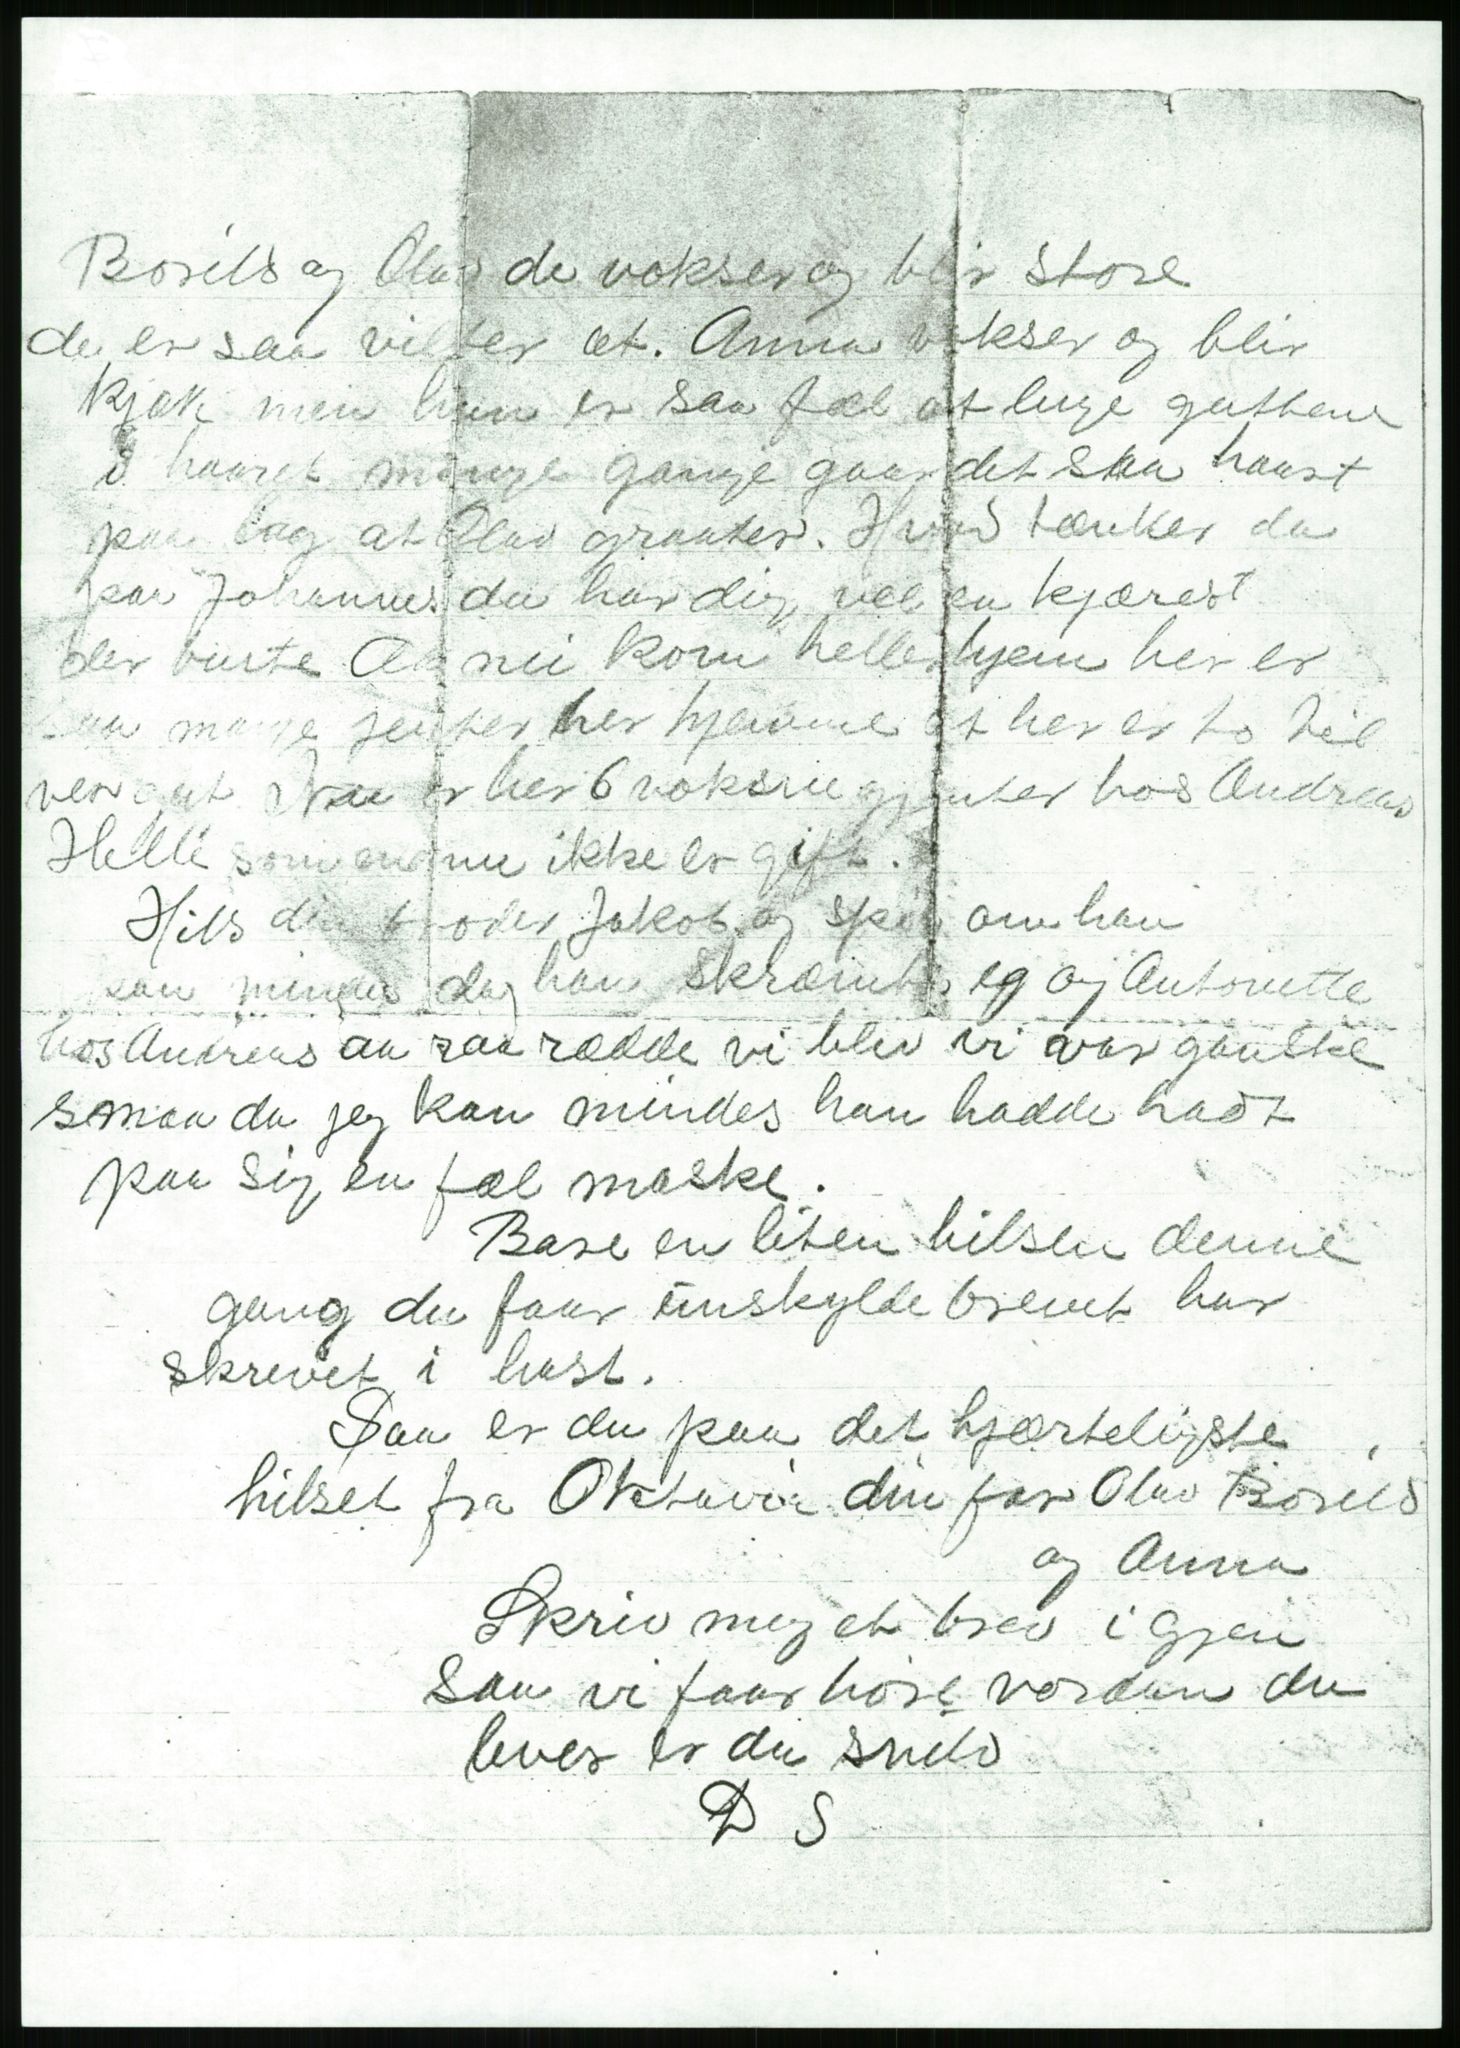 Borild og Olav de vokser og blir store
de er saa vilter at. Anna vokser og blir
kjæk men hun er saa fæl at luge guttene
i haaret mange gange gaar det saa haart
paa lag at Olav graater. Hvad tænker du
paa Johannes du har dig vel en kjærest
der burte Aa nei kom heller hjem her er
saa mange jenter her hjemme at her er to til
ver gut er her 6 voksne gjenter hos Andreas
Helle som endnu ikke er gift.
Hils din broder Jakob og spør om han
kan mindes dag han skræmte eg og Antonette
hos Andreas aa saa rædde vi blev vi var ganske
smaa da jeg kan mindes han hadde hadt
paa sig en fæl maske.
Bare en liten hilsen denne
gang du faar unskylde brevet har
skrevet i hast.
Saa er du paa det hjærteligste
hilset fra Oktavia din far Olav Borild
og Anna
Skriv meg et brev i gjen
saa vi faar høre vordan du
lever er du snild
D S